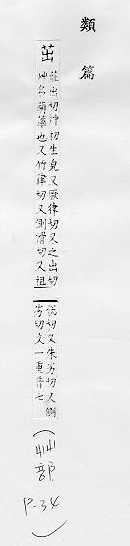 類篇
茁
莊出切艸初生皃又厥律切又之出切
艸名蒟藷也又竹律切又側滑切又徂
悅切又朱劣切又側
劣切文一重音七
(艸部
P-34)